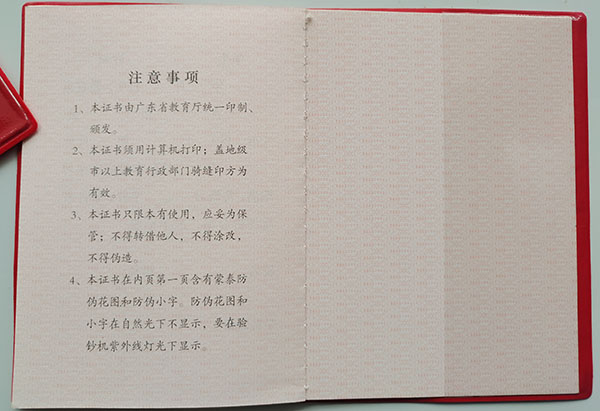 注意事项
1、本证书由广东省教育厅统一印制、
颁发。
2、本证书须用计算机打印；盖地级
市以上教育行政部门骑缝印方为
有效。
3、本证书只限本有使用，应妥为保
管；不得转借他人，不得涂改，
不得伪造。
4、本证书在内页第一页含有蒙泰防
伪花图和防伪小字。防伪花图和
小字在自然光下不显示，要在验
钞机紫外线灯光下显示。